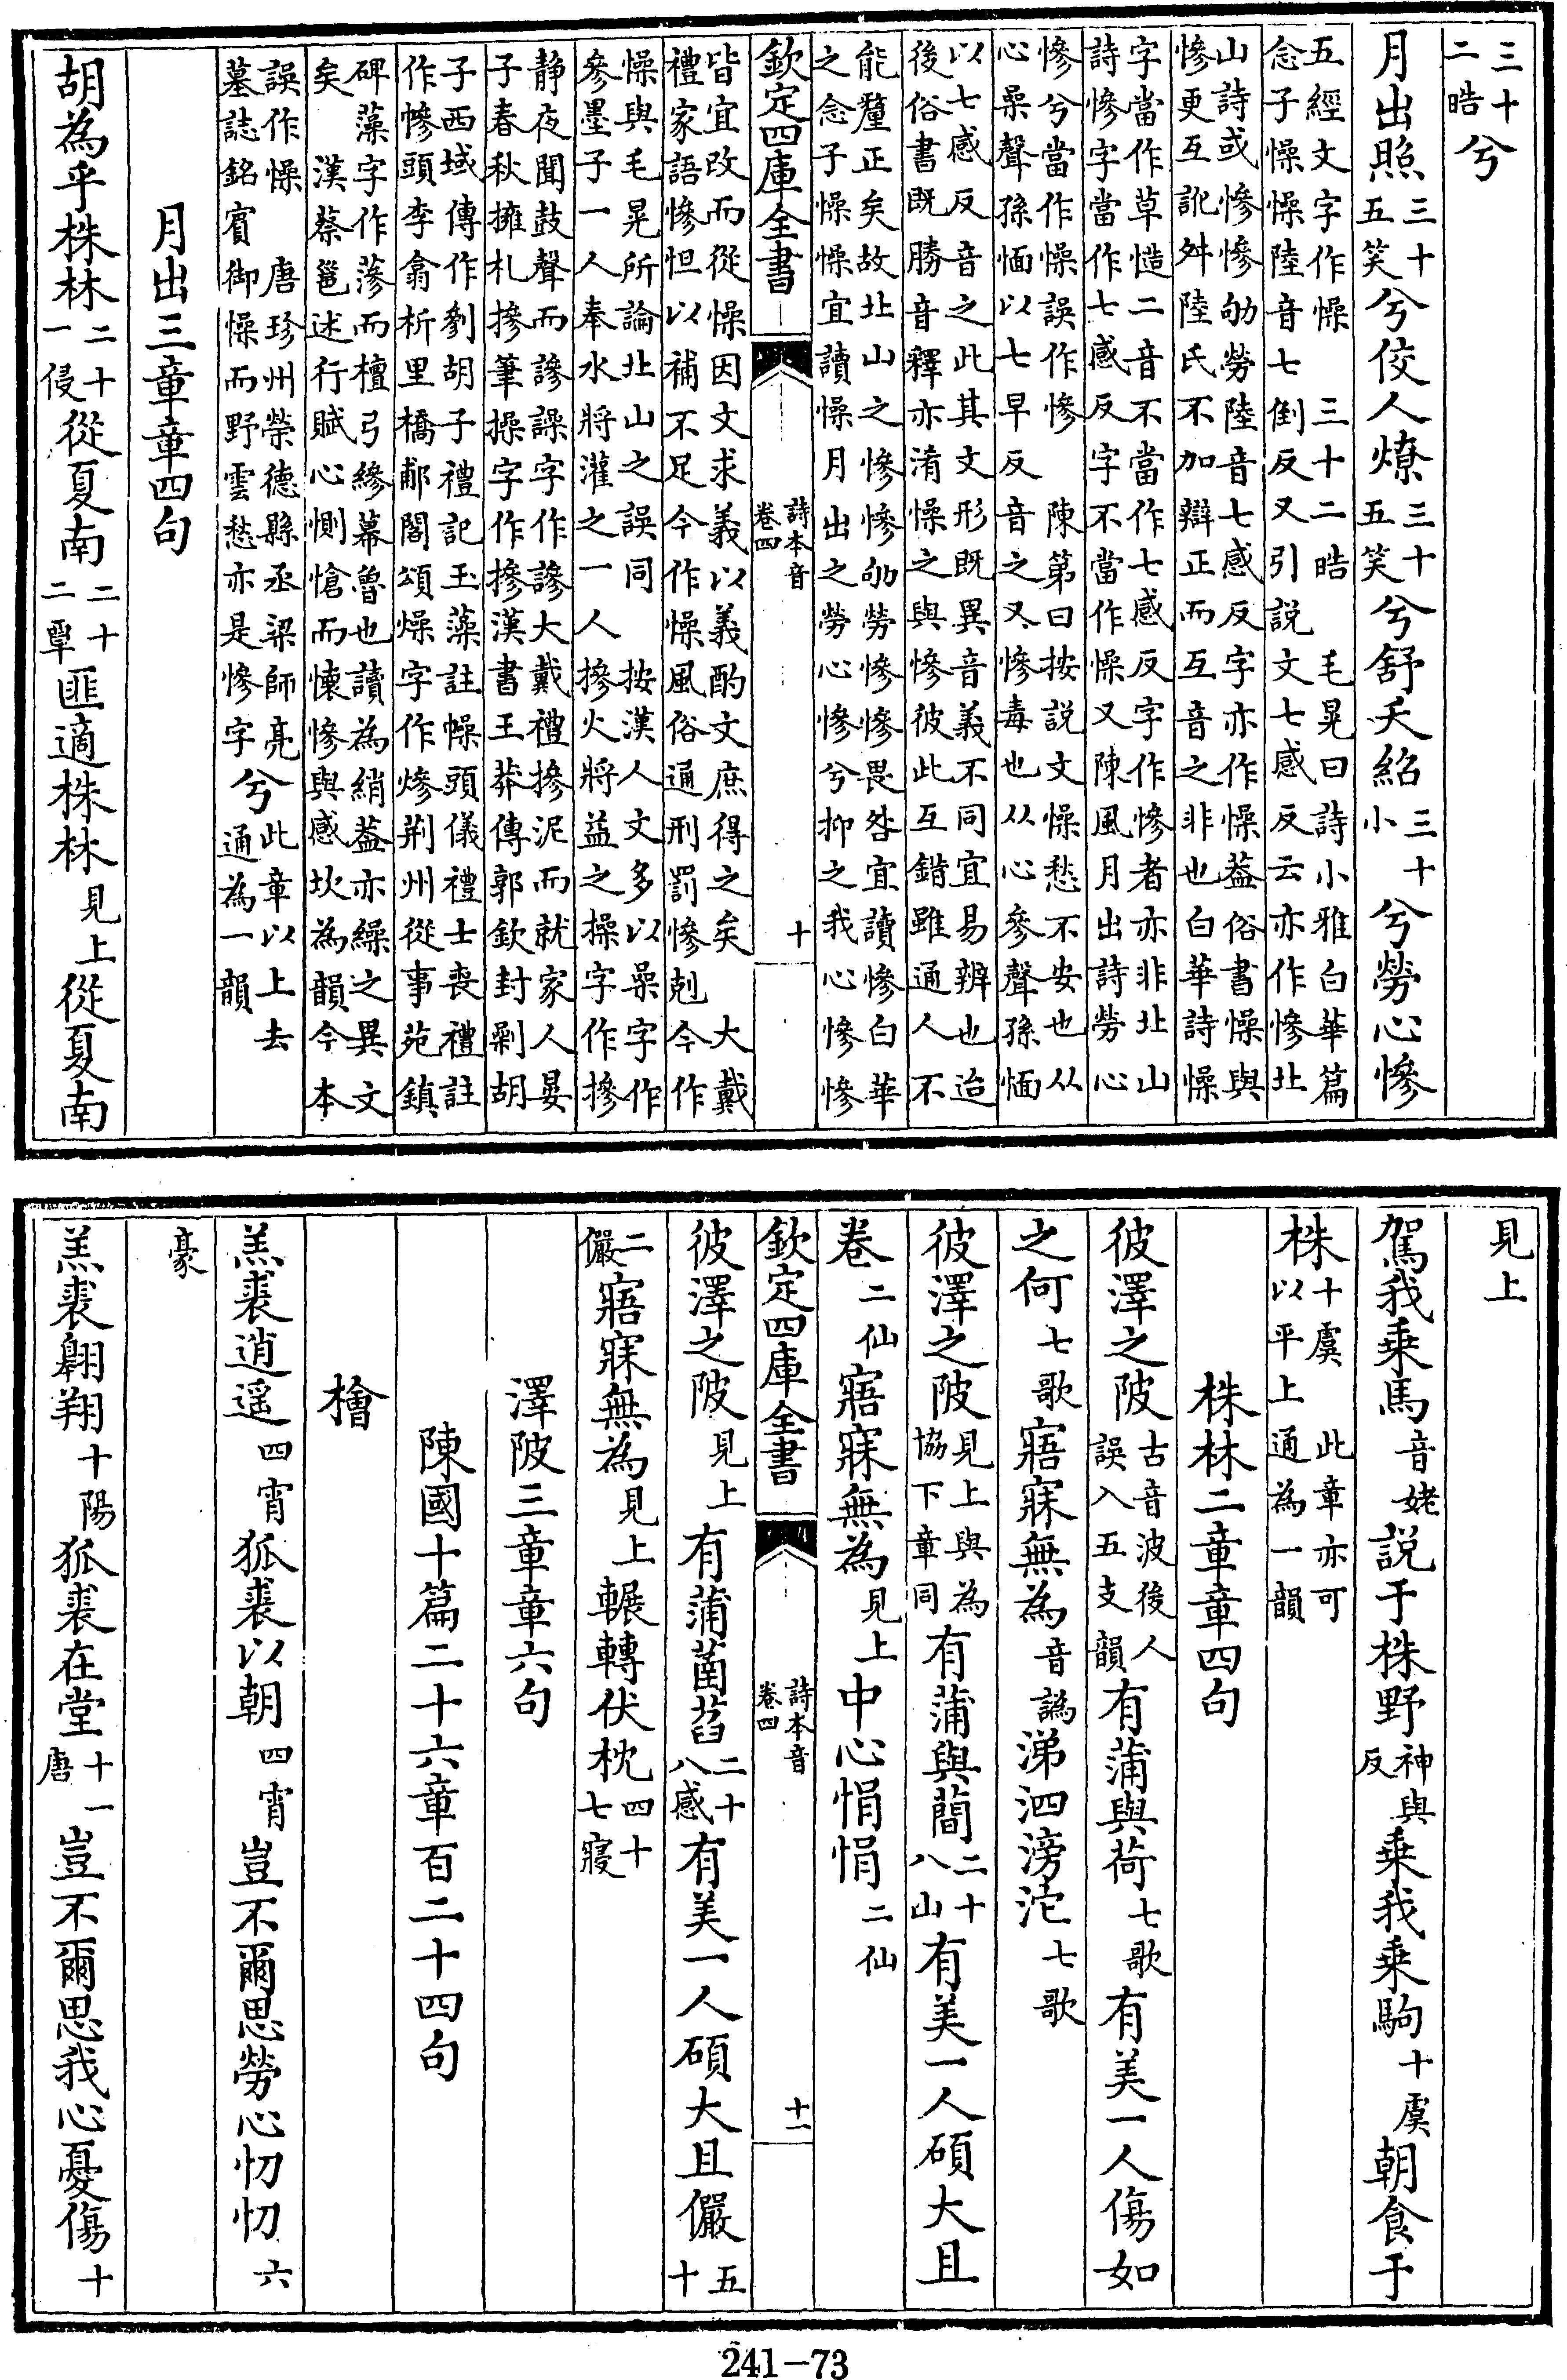 三十二晧兮
月出照三十五笑兮佼人燎三十五笑兮舒夭紹三十小兮勞心慘
五經文字作懆　三十二晧　毛晃曰詩小雅白華篇
念子懆懆陸音七倒反又引説文七感反云亦作慘北
山詩或慘慘劬勞陸音七感反字亦作懆葢俗書懆與
慘更互訛舛陸氏不加辯正而互音之非也白華詩懆
字當作草愺二音不當作七感反字作慘者亦非北山
詩慘字當作七感反字不當作懆又陳風月出詩勞心
慘兮當作懆誤作慘　陳第曰按説文懆愁不安也从
心喿聲孫愐以七早反音之又慘毒也从心參聲孫愐
以七感反音之此其文形既異音義不同宜易辨也迨
後俗書既勝音釋亦淆懆之與慘彼此互錯雖通人不
能釐正矣故北山之慘慘劬勞慘慘畏咎宜讀慘白華
之念子懆懆宜讀懆月出之勞心慘兮抑之我心慘慘
欽定四庫全書　詩本音卷四　十
皆宜改而從懆因文求義以義酌文庶得之矣　大戴
禮家語慘怛以補不足今作懆風俗通刑罰慘剋今作
懆與毛晃所論北山之誤同　按漢人文多以喿字作
參墨子一人奉水將灌之一人摻火將益之操字作摻
静夜聞鼓聲而謲譟字作謲大戴禮摻泥而就家人晏
子春秋擁札摻筆操字作摻漢書王莽傳郭欽封剿胡
子西域傳作劋胡子禮記玉藻註幧頭儀禮士喪禮註
作幓頭李翕析里橋郙閣頌燥字作㷎荆州從事苑鎮
碑藻字作㵕而檀弓縿幕魯也讀為綃葢亦繰之異文
矣　漢蔡邕述行賦心惻愴而懷慘與感坎為韻今本
誤作懆　唐珍州榮德縣丞梁師亮
墓誌銘賓御懆而野雲愁亦是慘字兮此章以上去通為一韻
月出三章章四句
胡為乎株林二十一侵從夏南二十二覃匪適株林見上從夏南
見上
駕我乗馬音姥説于株野神與反乗我乘駒十虞朝食于
株十虞　此章亦可以平上通為一韻
株林二章章四句
彼澤之陂古音波後人誤入五支韻有蒲與荷七歌有美一人傷如
之何七歌寤寐無為音譌涕泗滂沱七歌
彼澤之陂見上與為協下章同有蒲與蕳二十八山有美一人碩大且
卷二仙寤寐無為見上中心悁悁二仙
欽定四庫全書　詩本音卷四　十一
彼澤之陂見上有蒲菡萏二十八感有美一人碩大且儼五十
二儼寤寐無為見上輾轉伏枕四十七寑
澤陂三章章六句
陳國十篇二十六章百二十四句
檜
羔裘逍遥四宵狐裘以朝四宵豈不爾思勞心忉忉六
豪
羔裘翱翔十陽狐裘在堂十一唐豈不爾思我心憂傷十
241-73